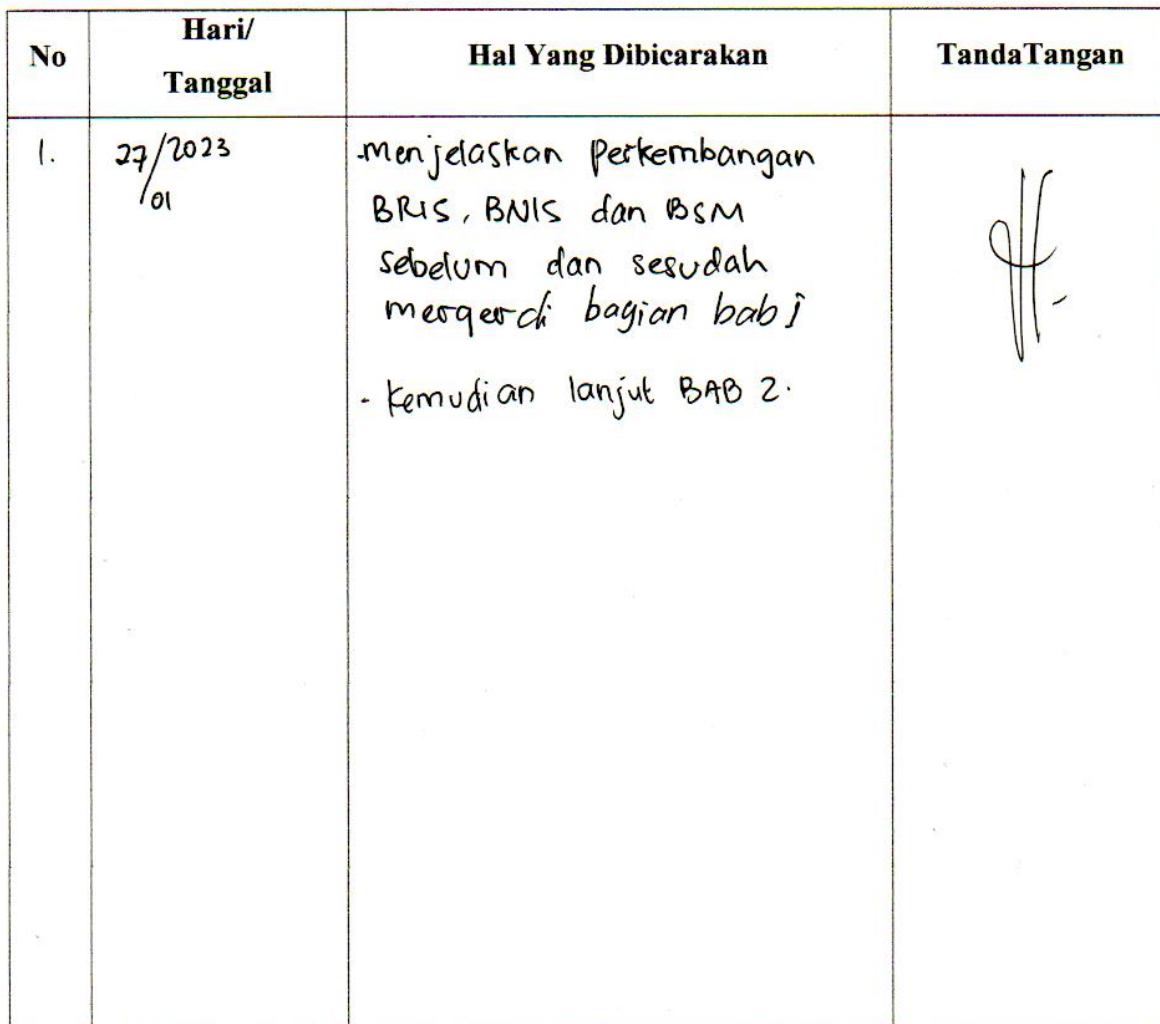 No
Hari/
Tanggal
Hal Yang Dibicarakan
TandaTangan
1.
27/2023
/01
-menjelaskan Perkembangan
BRIS, BNIS dan BSM
sebelum dan sesudah
merger di bagian bab i
- kemudian lanjut BAB 2.